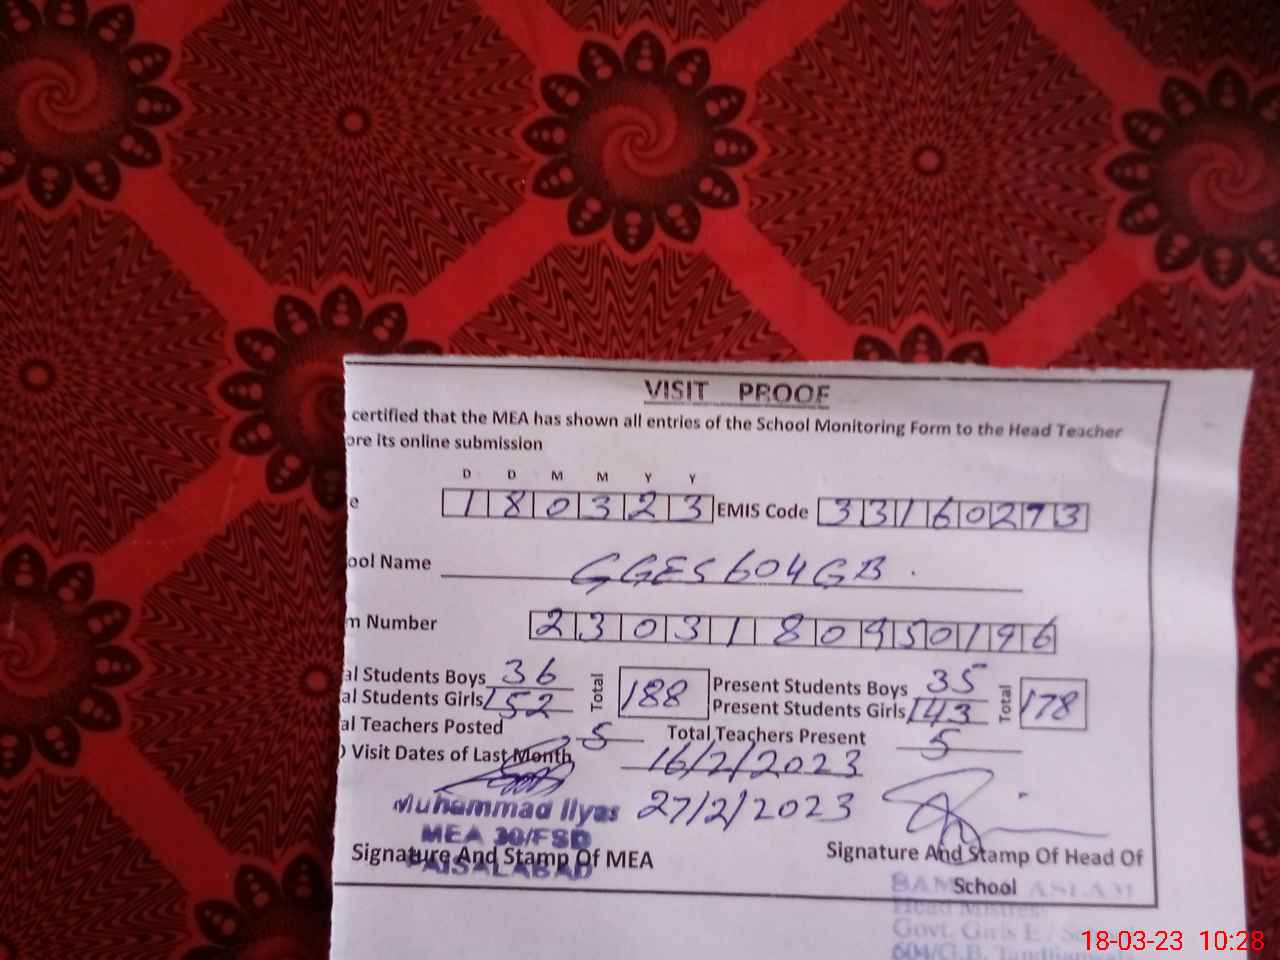 VISIT PROOF
certified that the MEA has shown all entries of the School Monitoring Form to the Head Teacher
ore its online submission
D D M M Y Y
e 180323 EMIS Code 33160273
ool Name GGES 604 GB .
m Number 2303180950196
al Students Boys 36 Total 188 Present Students Boys 35 Total 178
al Students Girls 152 Present Students Girls 143
al Teachers Posted 5 Total Teachers Present 5
) Visit Dates of Last Month 16/2/2023
Muhammad Ilyas 27/2/2023
MEA 30/FSD
Signature And Stamp Of MEA Signature And Stamp Of Head Of
FAISALABAD School
ASLAM
Head Mistress
Govt. Girls E/
604/G.B.
18-03-23 10:28